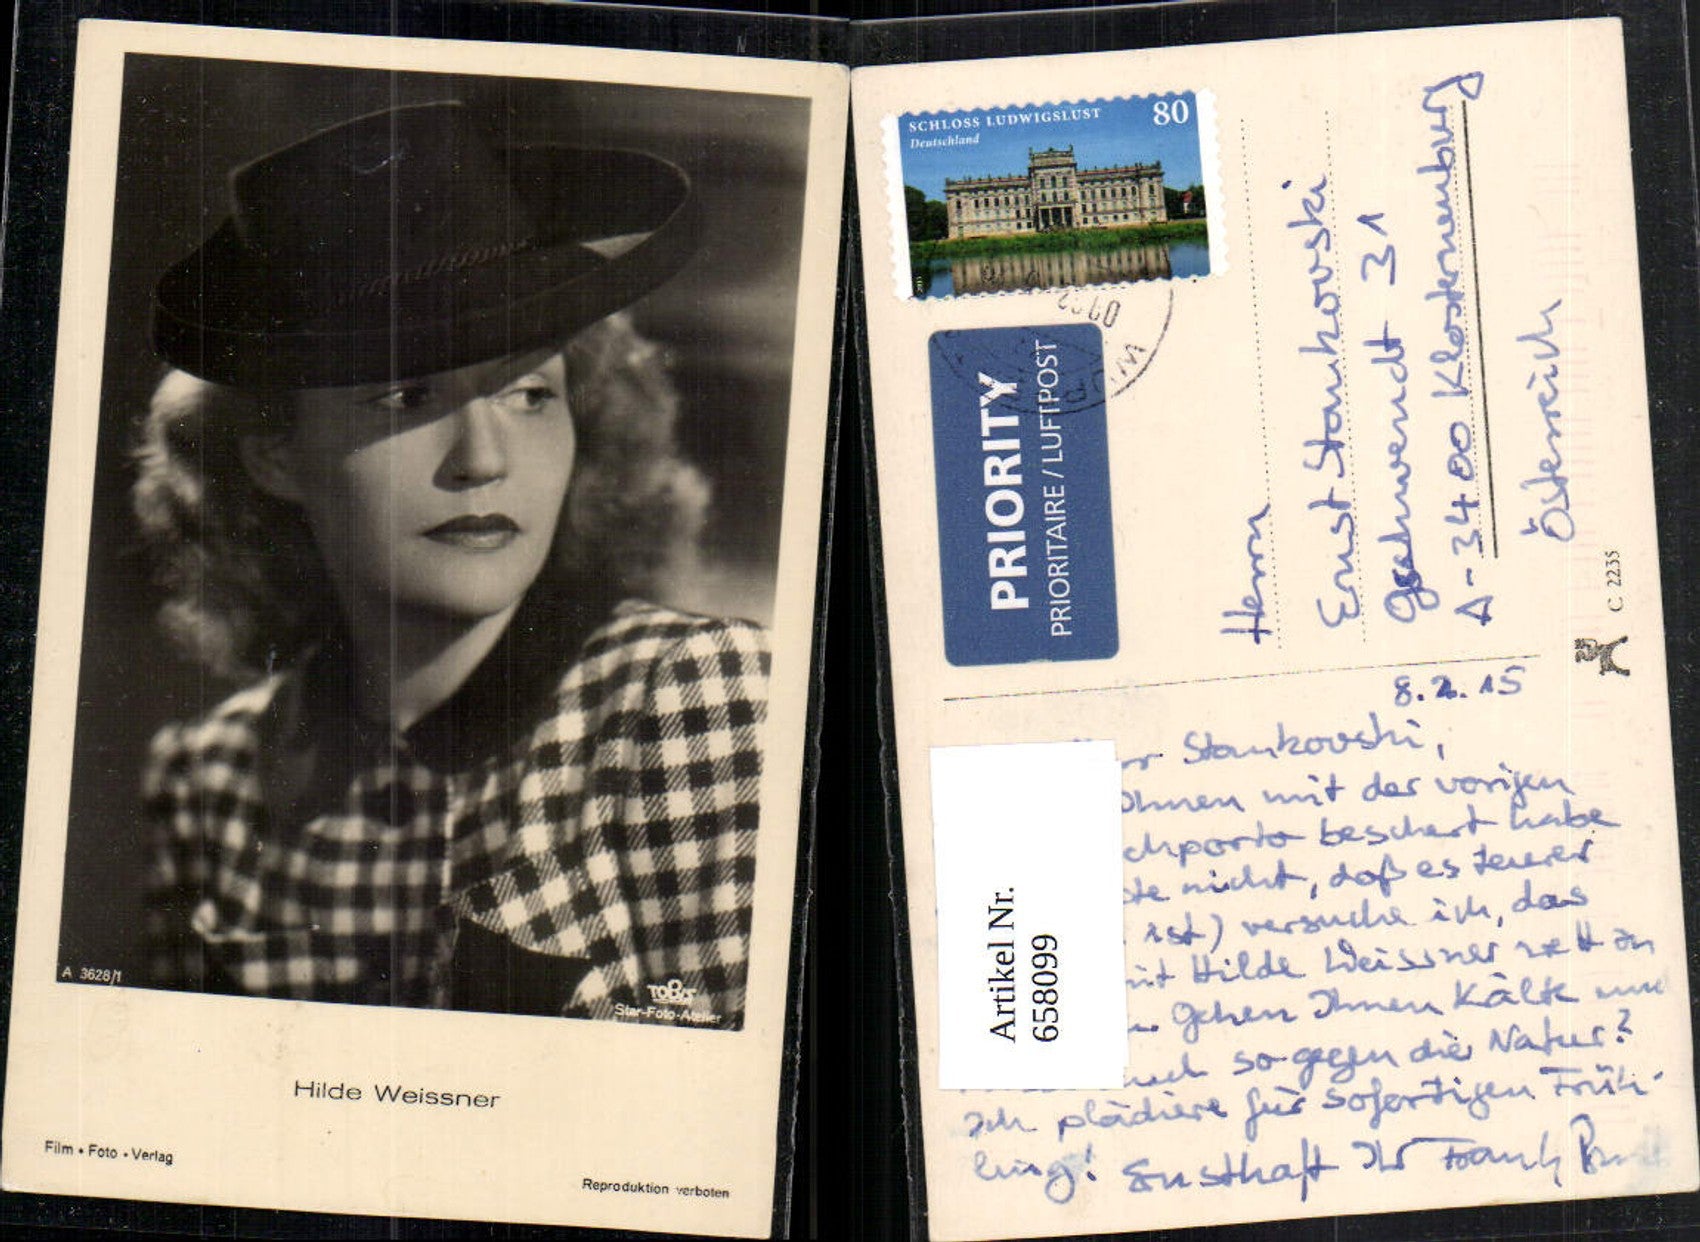 A 3628/1
TOBIS
Star-Foto-Atelier
Hilde Weissner
Film • Foto • Verlag
Reproduktion verboten
SCHLOSS LUDWIGSLUST 80
Deutschland
PRIORITY
PRIORITAIRE / LUFTPOST
Herrn
Ernst Stankovski
Gschwendt 31
A-3400 Klosterneuburg
Österreich
C 2235
Artikel Nr.
658099
8.2.15
Stankovski,
Ihnen mit der vorigen
chporto beschert habe
nicht, daß es teurer
ist) versuche ich, das
mit Hilde Weissner
Gehen Ihnen Kälte und
so gegen die Natur?
Ich plädiere für sofortigen Früh-
ling! Ernsthaft Ihr Frank